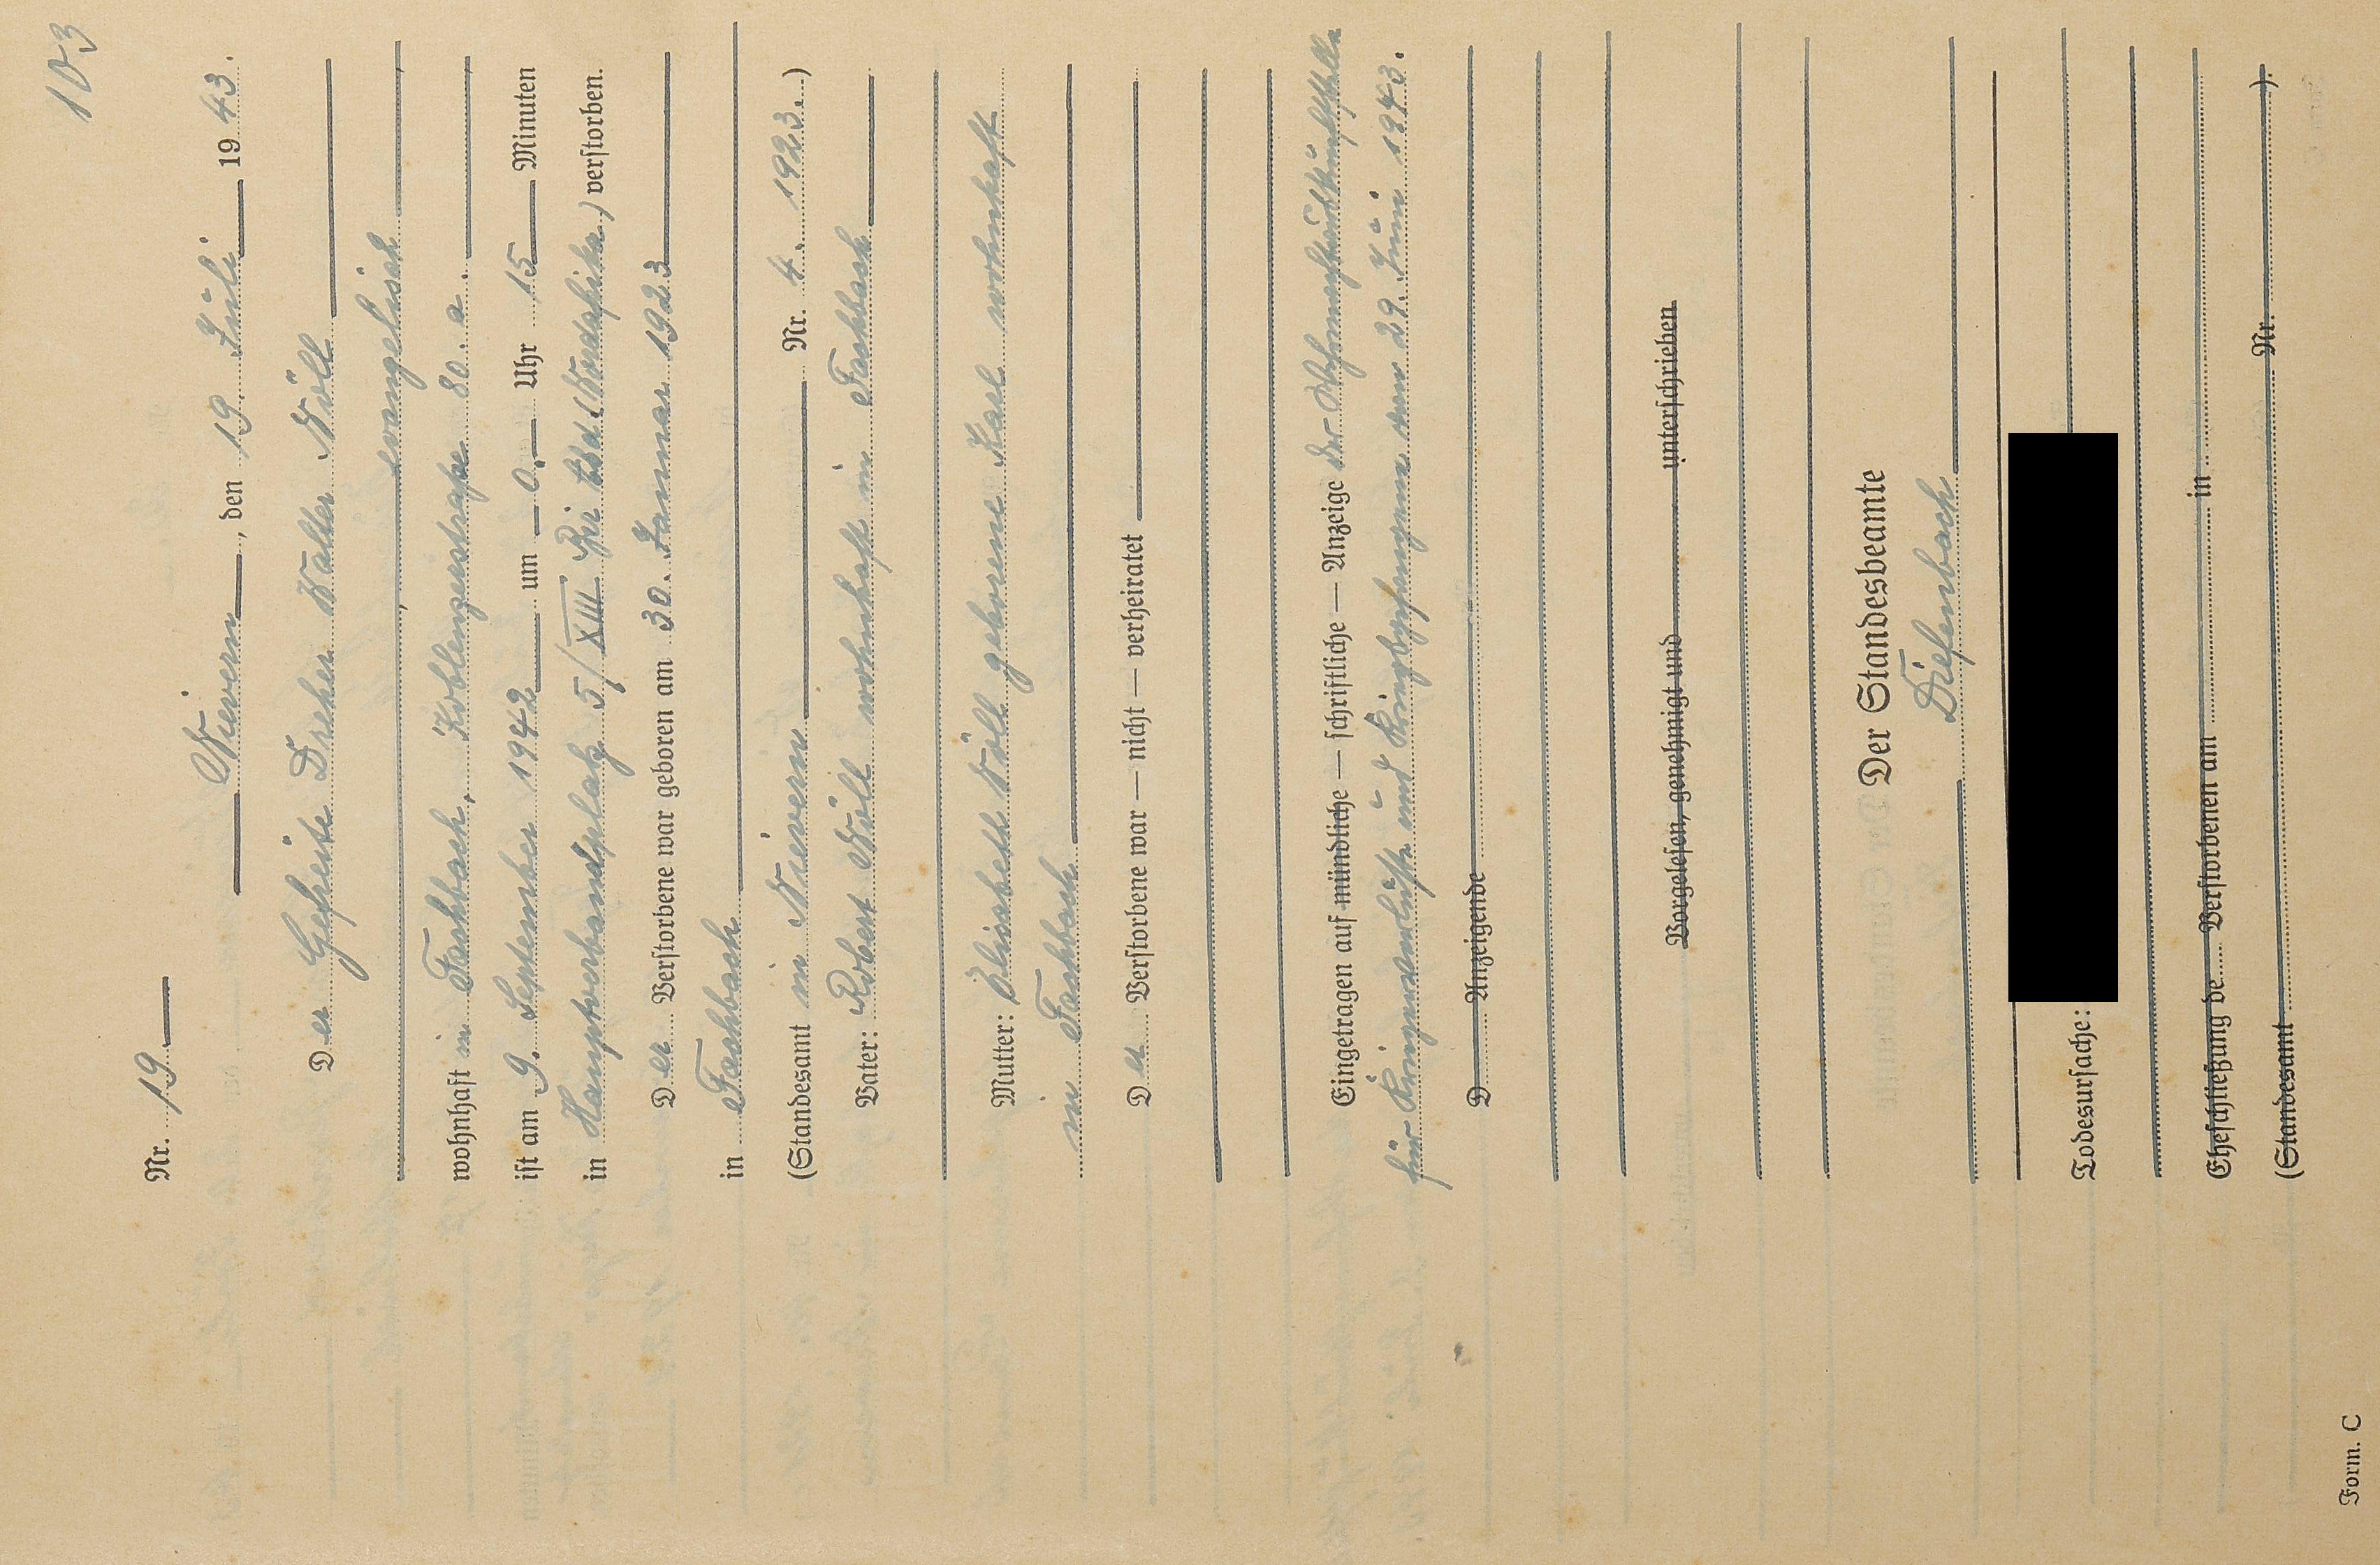 103
Nr. 19
Nievern, den 19. Juli 1943.
Der Gefreite Dreher Walter Nöll
, evangelisch,
wohnhaft in Fachbach, Koblenzerstraße 80.a.,
ist am 9. September 1942 um 0. Uhr 15 Minuten
in Hauptverbandplatz 5/XIII Bir (Nordafrika) verstorben.
Der Verstorbene war geboren am 30. Januar 1923
in Fachbach
(Standesamt in Nievern Nr. 4. 1923.)
Vater: Robert Nöll wohnhaft in Fachbach
Mutter: Elisabeth Nöll geborene Karl wohnhaft
in Fachbach
Der Verstorbene war — nicht — verheiratet
Eingetragen auf mündliche — schriftliche — Anzeige der Wehrmachtauskunftstelle
für Kriegerverluste und Kriegsgefangene vom 29. Juni 1943.
D Anzeigende
Vorgelesen, genehmigt und unterschrieben
Der Standesbeamte
Diefenbach
Todesursache:
Eheschließung de Verstorbenen am in
(Standesamt Nr. ).
Form. C